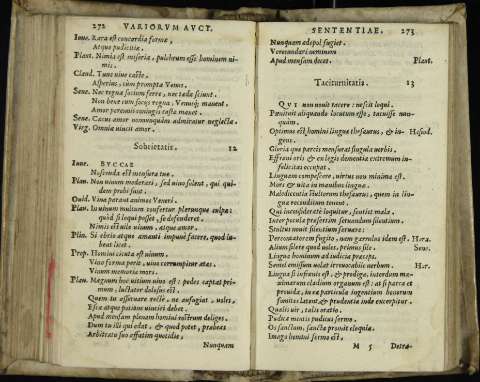 272 VARIORVM AVCT.
Iuue. Rara est concordia formæ,
Atque pudicitiæ.
Plaut. Nimia est miseria, pulchrum esse hominem ni-
mis.
Claud. Tunc viuc
Asperius, cum prompta Venus.
Sene. Nec regna socium ferre, nec tædæ sciunt.
Non bene cum socijs regna, Venusq; manent.
Amor perennis coniugis casta manet.
Sene. Cæcus amor nonnunquam admiratur neglecta.
Virg. Omnia vincit amor.
Sobrietatis. 12
Iuue. BVCCAE
Noscenda est mensura tuæ.
Plau. Non vinum moderari, sed vino solent, qui qui-
dem probi sunt.
Ouid. Vina parant animos Veneri.
Plau. In vinum multam conferunt plerunque culpam:
quòd si loqui posset, se defenderet.
Nimis est vile vinum, atque amor.
Plin. Si ebrio atque amanti impunè facere, quod lu-
beat licet.
Prop. Homini cinis est vinum.
Vino forma perit, vino corrumpitur ætas.
Vinum memoriæ mors.
Plau. Magnum hoc vitium vino est: pedes captat pri-
mum, luctator dolosus est.
Quem tu asseruare recte, ne aufugiat, voles,
Escæ atque potione vinciri debet.
Apud mensam plenam homini rostrum deliges.
Dum tu illi qui edat, & quod potet, præbeas
Arbitratu suo affatim quotidie,
Nunquam
SENTENTIAE. 273
Nunquam ædepol fugiet.
Verecundari neminem
Apud mensam decet. Plaut.
Taciturnitatis. 13
QVI non vult tacere: nescit loqui.
Pœnituit aliquando locutum esse, tacuisse nun-
quàm.
Optimus est homini linguæ thesaurus, & in- Hesiod.
gens.
Gloria quæ parcis mensurat singula verbis.
Effræni oris & exlegis dementiæ extremum in-
felicitas occupat.
Linguam compescere, virtus non minima est.
Mors & vita in manibus linguæ.
Maledicentia stultorum thesaurus, quem in lin-
gua recunditum tenent.
Qui inconsideratè loquitur, sentiet mala.
Interpocula præsertim seruandum silentium.
Stultus nouit silentium seruare:
Percontatorem fugito, nam garrulus idem est. Hora.
Alium silere quod voles, primus sile. Sene.
Lingua hominem ad iudicia præceps.
Semel emissum volat irreuocabile verbum. Hor.
Lingua si infrænis est, & prodiga, interdum ma-
ximarum cladium organum est: at si parca et
prouida, in ea particula ingentium bonorum
fomites latent, & prudentia inde excerpitur.
Qualis vir, talis oratio.
Pudicæ mentis pudicus sermo.
Os sanctum, sancta promit eloquia.
Imago homini sermo est,
M 5 Detra-